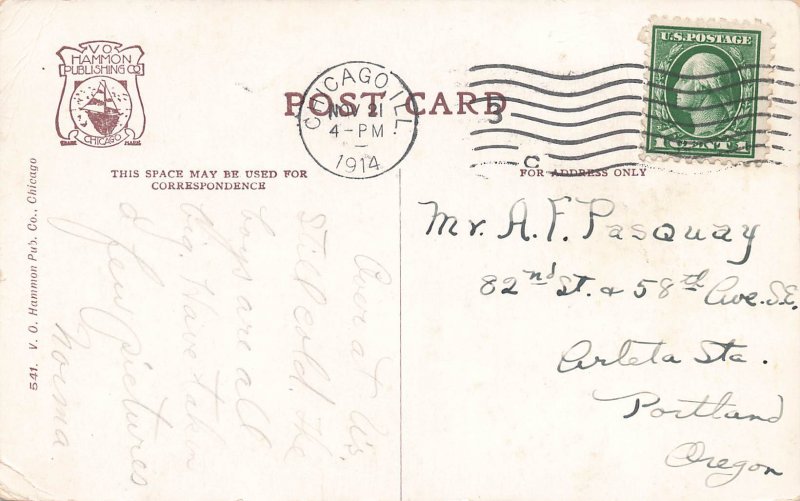 V O
HAMMON
PUBLISHING CO
CHICAGO
TRADE MARK
POST CARD
CHICAGO ILL.
NOV 21
4-PM
1914
3
C
U.S. POSTAGE
1 CENT 1
THIS SPACE MAY BE USED FOR
CORRESPONDENCE
FOR ADDRESS ONLY
541. V. O. Hammon Pub. Co., Chicago
Over at
still cold. The
boys are all
big. Have taken
a few pictures
Norma
Mr. A. F. Pasquay
82nd St. & 58th Ave. S.E.
Arleta Sta.
Portland
Oregon